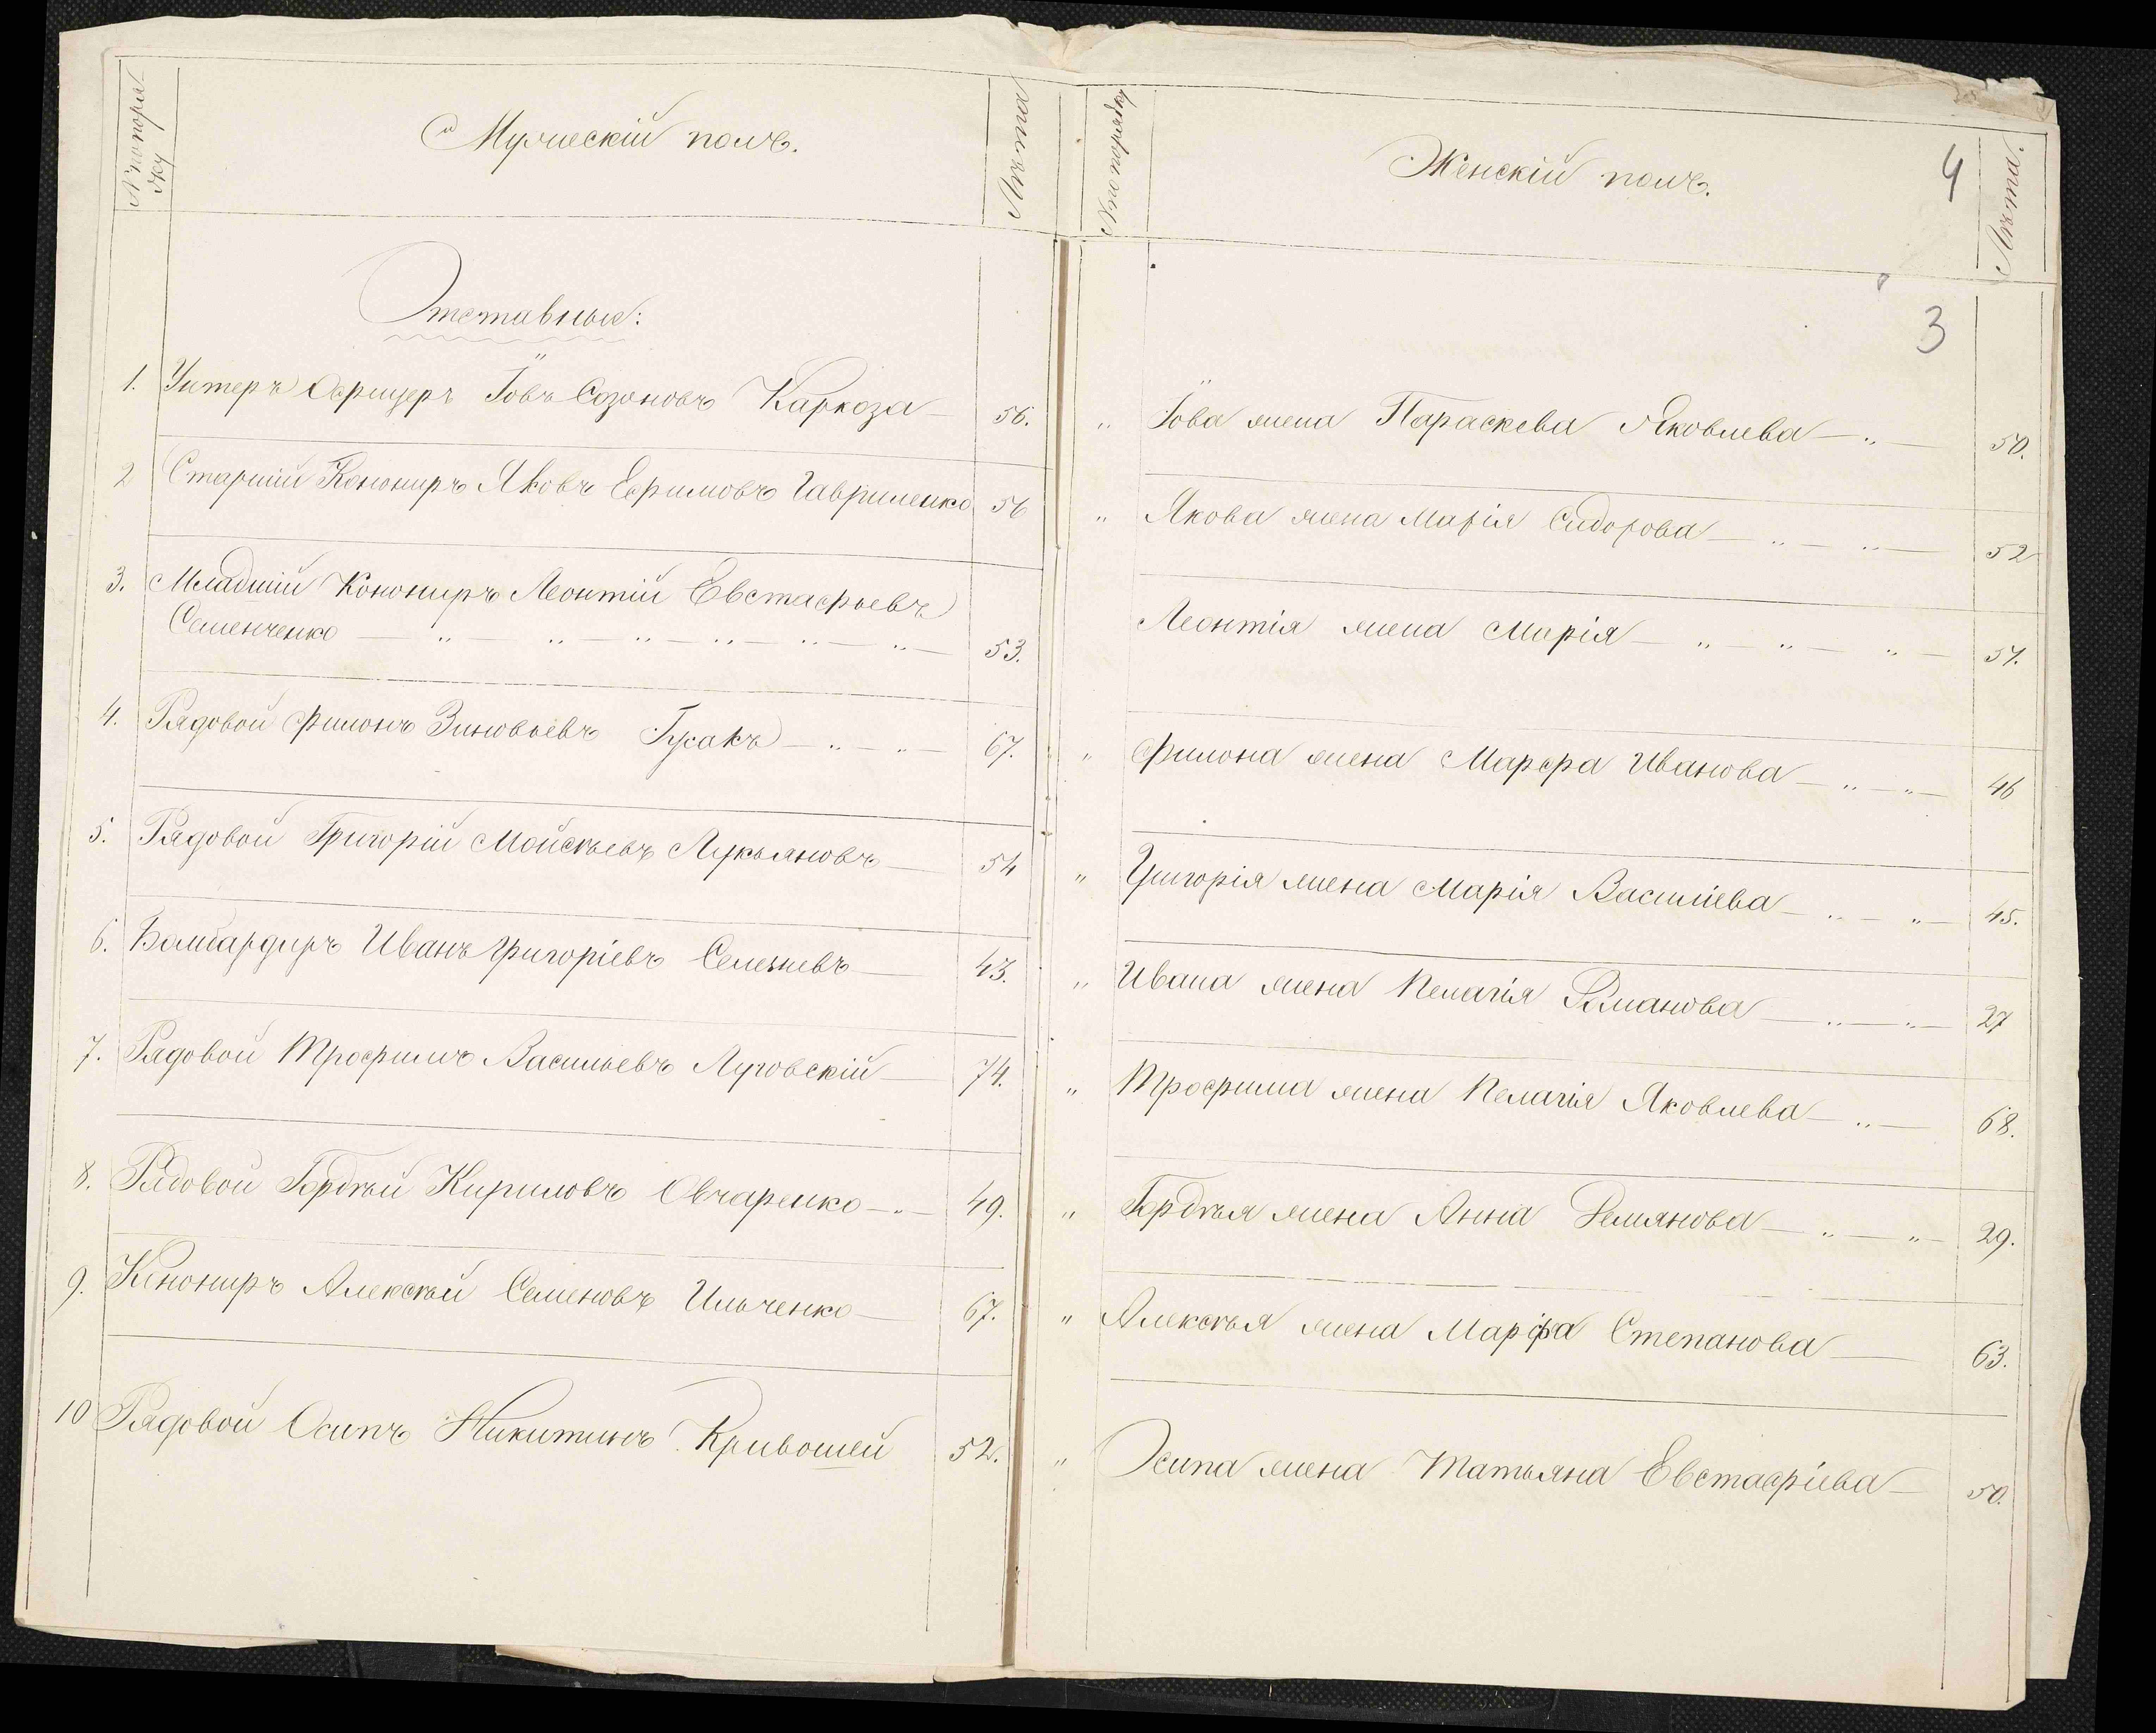 № по поря-
дку
Мужескій полъ.
Лѣта
Отставные:
1. Унтеръ Офицеръ Іовъ Созоновъ Каркоза — 56.
2 Старшій Конониръ Яковъ Ефимовъ Гавриленко 56
3. Младшій Конониръ Леонтій Евстафьевъ
Семенченко — „ — „ — „ — „ — „ — „ — 53.
4. Рядовой Филонъ Зиновьевъ Гусакъ — „ — „ — 67.
5. Рядовой Григорій Мойсѣевъ Лукьяновъ — 54
6. Бомбардиръ Иванъ Григоріевъ Селезневъ — 43.
7. Рядовой Трофимъ Васильевъ Луговскій — 74.
8. Рядовой Гордѣй Кириловъ Овчаренко — „ — 49.
9. Конониръ Алексѣй Семеновъ Ильченко — 67.
10 Рядовой Осипъ Никитинъ Кривошей 52.
№ по порядку
Женскій полъ.
4
Лѣта.
3
„ Іова жена Параскева Яковлева — „ — 50.
„ Якова жена Марія Сидорова — „ — „ — 52
Леонтія жена Марія — „ — „ — „ — 57.
„ Филона жена Марфа Иванова — „ — „ — 46
„ Григорія жена Марія Василіева — „ — „ — 45.
„ Ивана жена Пелагія Романова — „ — „ — 27
„ Трофима жена Пелагія Яковлева — „ — 68.
„ Гордѣя жена Анна Демянова — „ — „ — 29.
„ Алексѣя жена Марфа Степанова — 63.
„ Осипа жена Татьяна Евстафіева — 50.